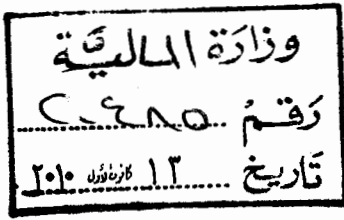 وزارة المالية
رقم ٢٠٤٨٥
تاريخ ١٣ كانون الأول ٢٠١٠